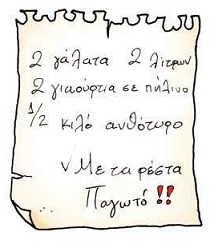 2 γάλατα 2 λίτρων
2 γιαούρτια σε πήλινο
1/2 κιλό ανθότυρο
√ Με τα ρέστα
Παγωτό !!